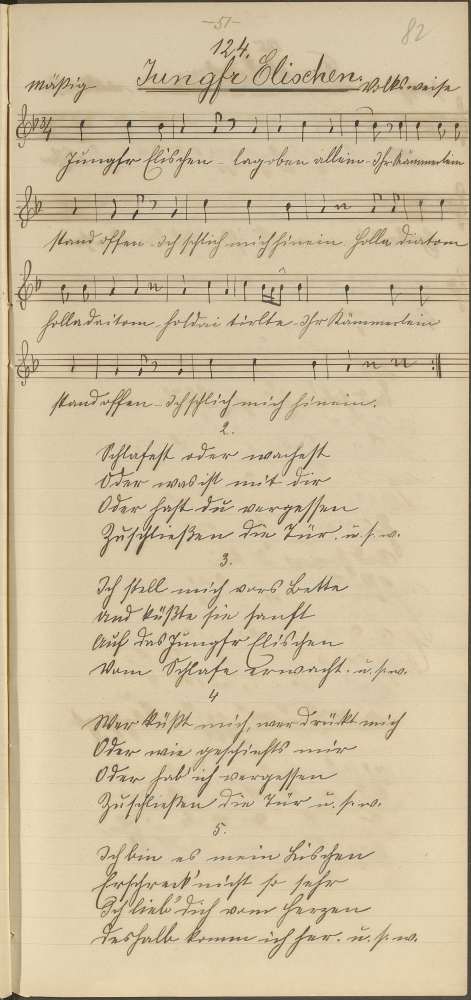 -51-
82
124.
Jungfr Elischen.
Mäßig
Volksweise
Jungfr Elischen - lag oben allein - Ihr Kämmerlein
stand offen - Ich schlich mich hinein. Holla diatom
holladeitom holdai tirlte - Ihr Kämmerlein
stand offen - Ich schlich mich hinein.
2.
Schlafest oder wachest
Oder was ist mit dir
Oder hast du vergessen
Zuschließen die Tür. u. s. w.
3.
Ich stell mich vors Bette
Und küßte sie sanft
Auf das Jungfr Elischen
Vom Schlafe erwacht. u. s. w.
4
Wer küßt mich, wer drückt mich
Oder wie geschiehts mir
Oder hab' ich vergessen
Zuschließen die Tür u. s. w.
5.
Ich bin es mein Lischen
Erschreck' nicht so sehr
Ich lieb' dich vom Herzen
Deshalb komm ich her. u. s. w.